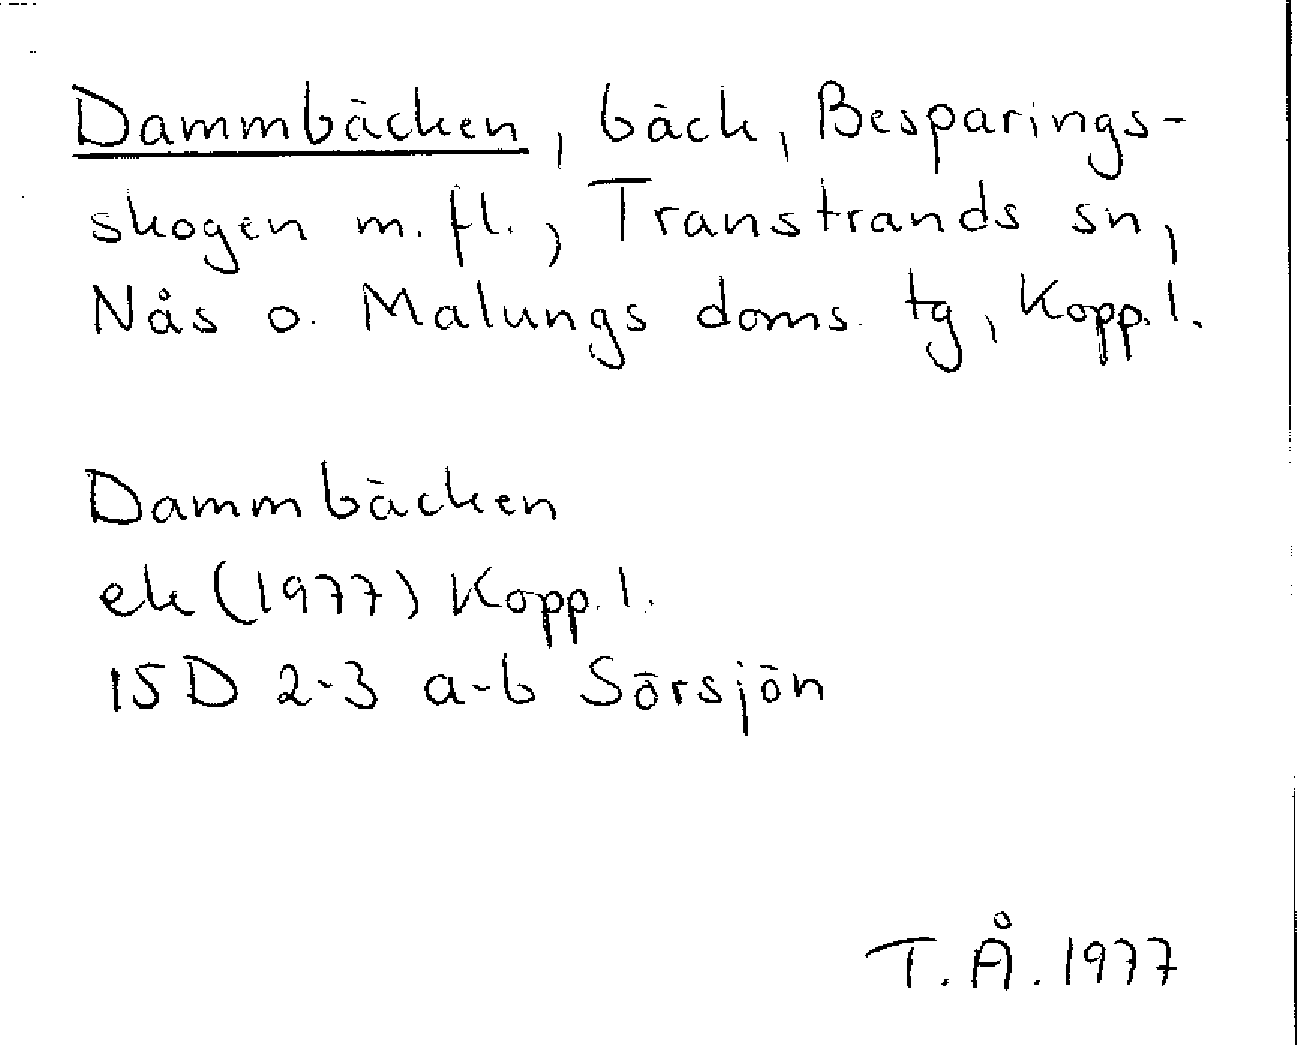 Dammbäcken, bäck, Besparings-
skogen m. fl., Transtrands sn,
Nås o. Malungs doms. tg, Kopp. l.
Dammbäcken
ek (1977) Kopp. l.
15D 2-3 a-b Sörsjön
T. Å. 1977